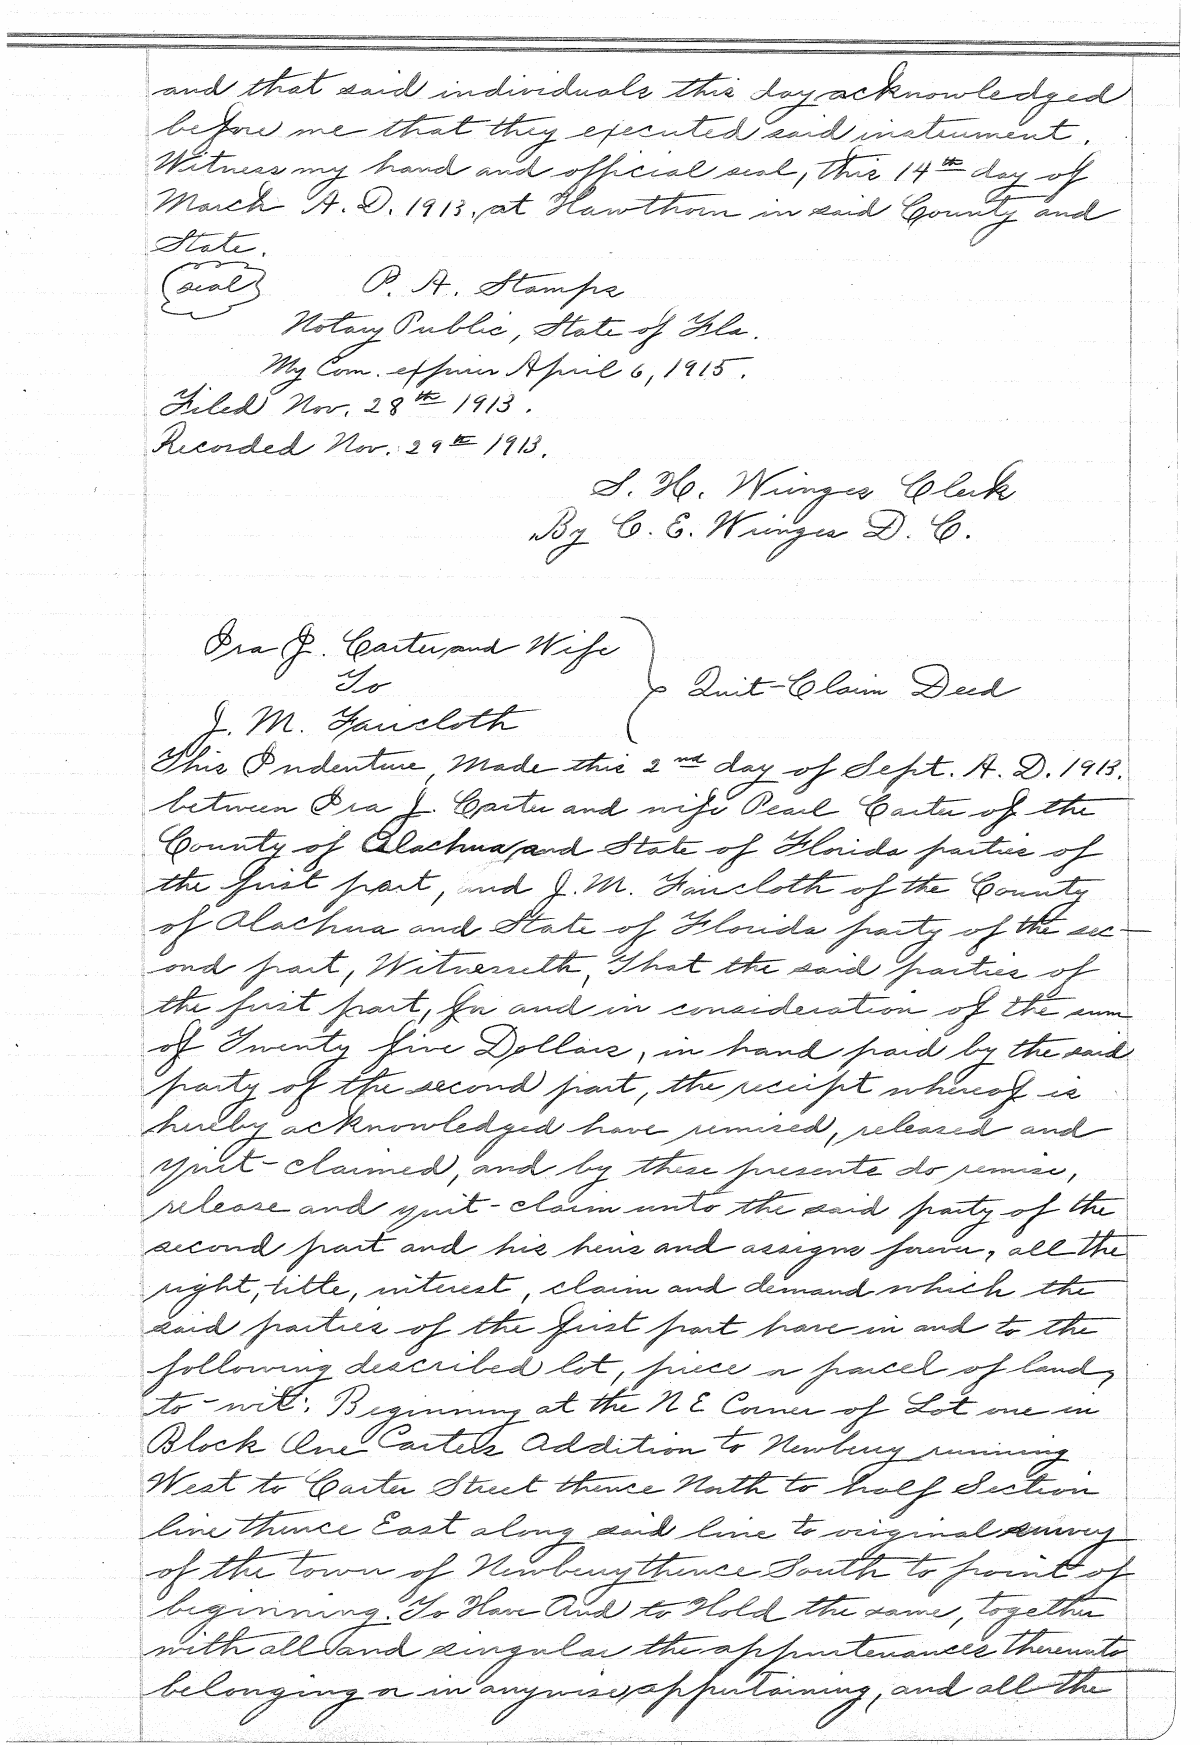 and that said individuals this day acknowledged
before me that they executed said instrument.
Witness my hand and official seal, this 14th day of
March A.D. 1913, at Hawthorn in said County and
State.
(seal) P. A. Stamps
Notary Public, State of Fla.
My Com. expires April 6, 1915.
Filed Nov. 28th 1913.
Recorded Nov. 29th 1913.
S. H. Wienges Clerk
By C. E. Wienges D. C.
Ira J. Carter and Wife
To
Quit-Claim Deed
J. M. Faircloth
This Indenture, Made this 2nd day of Sept. A. D. 1913.
between Ira J. Carter and wife Pearl Carter of the
County of Alachua and State of Florida parties of
the first part, and J. M. Faircloth of the County
of Alachua and State of Florida party of the sec-
ond part, Witnesseth, That the said parties of
the first part, for and in consideration of the sum
of Twenty five Dollars, in hand paid by the said
party of the second part, the receipt whereof is
hereby acknowledged have remised, released and
quit-claimed, and by these presents do remise,
release and quit-claim unto the said party of the
second part and his heirs and assigns forever, all the
right, title, interest, claim and demand which the
said parties of the first part have in and to the
following described lot, piece or parcel of land,
to-wit: Beginning at the N E Corner of Lot one in
Block One Carters Addition to Newberry running
West to Carter Street thence North to half Section
line thence East along said line to original survey
of the town of Newberry thence South to point of
beginning. To Have And to Hold the same, together
with all and singular the appurtenances thereunto
belonging or in anywise appertaining, and all the